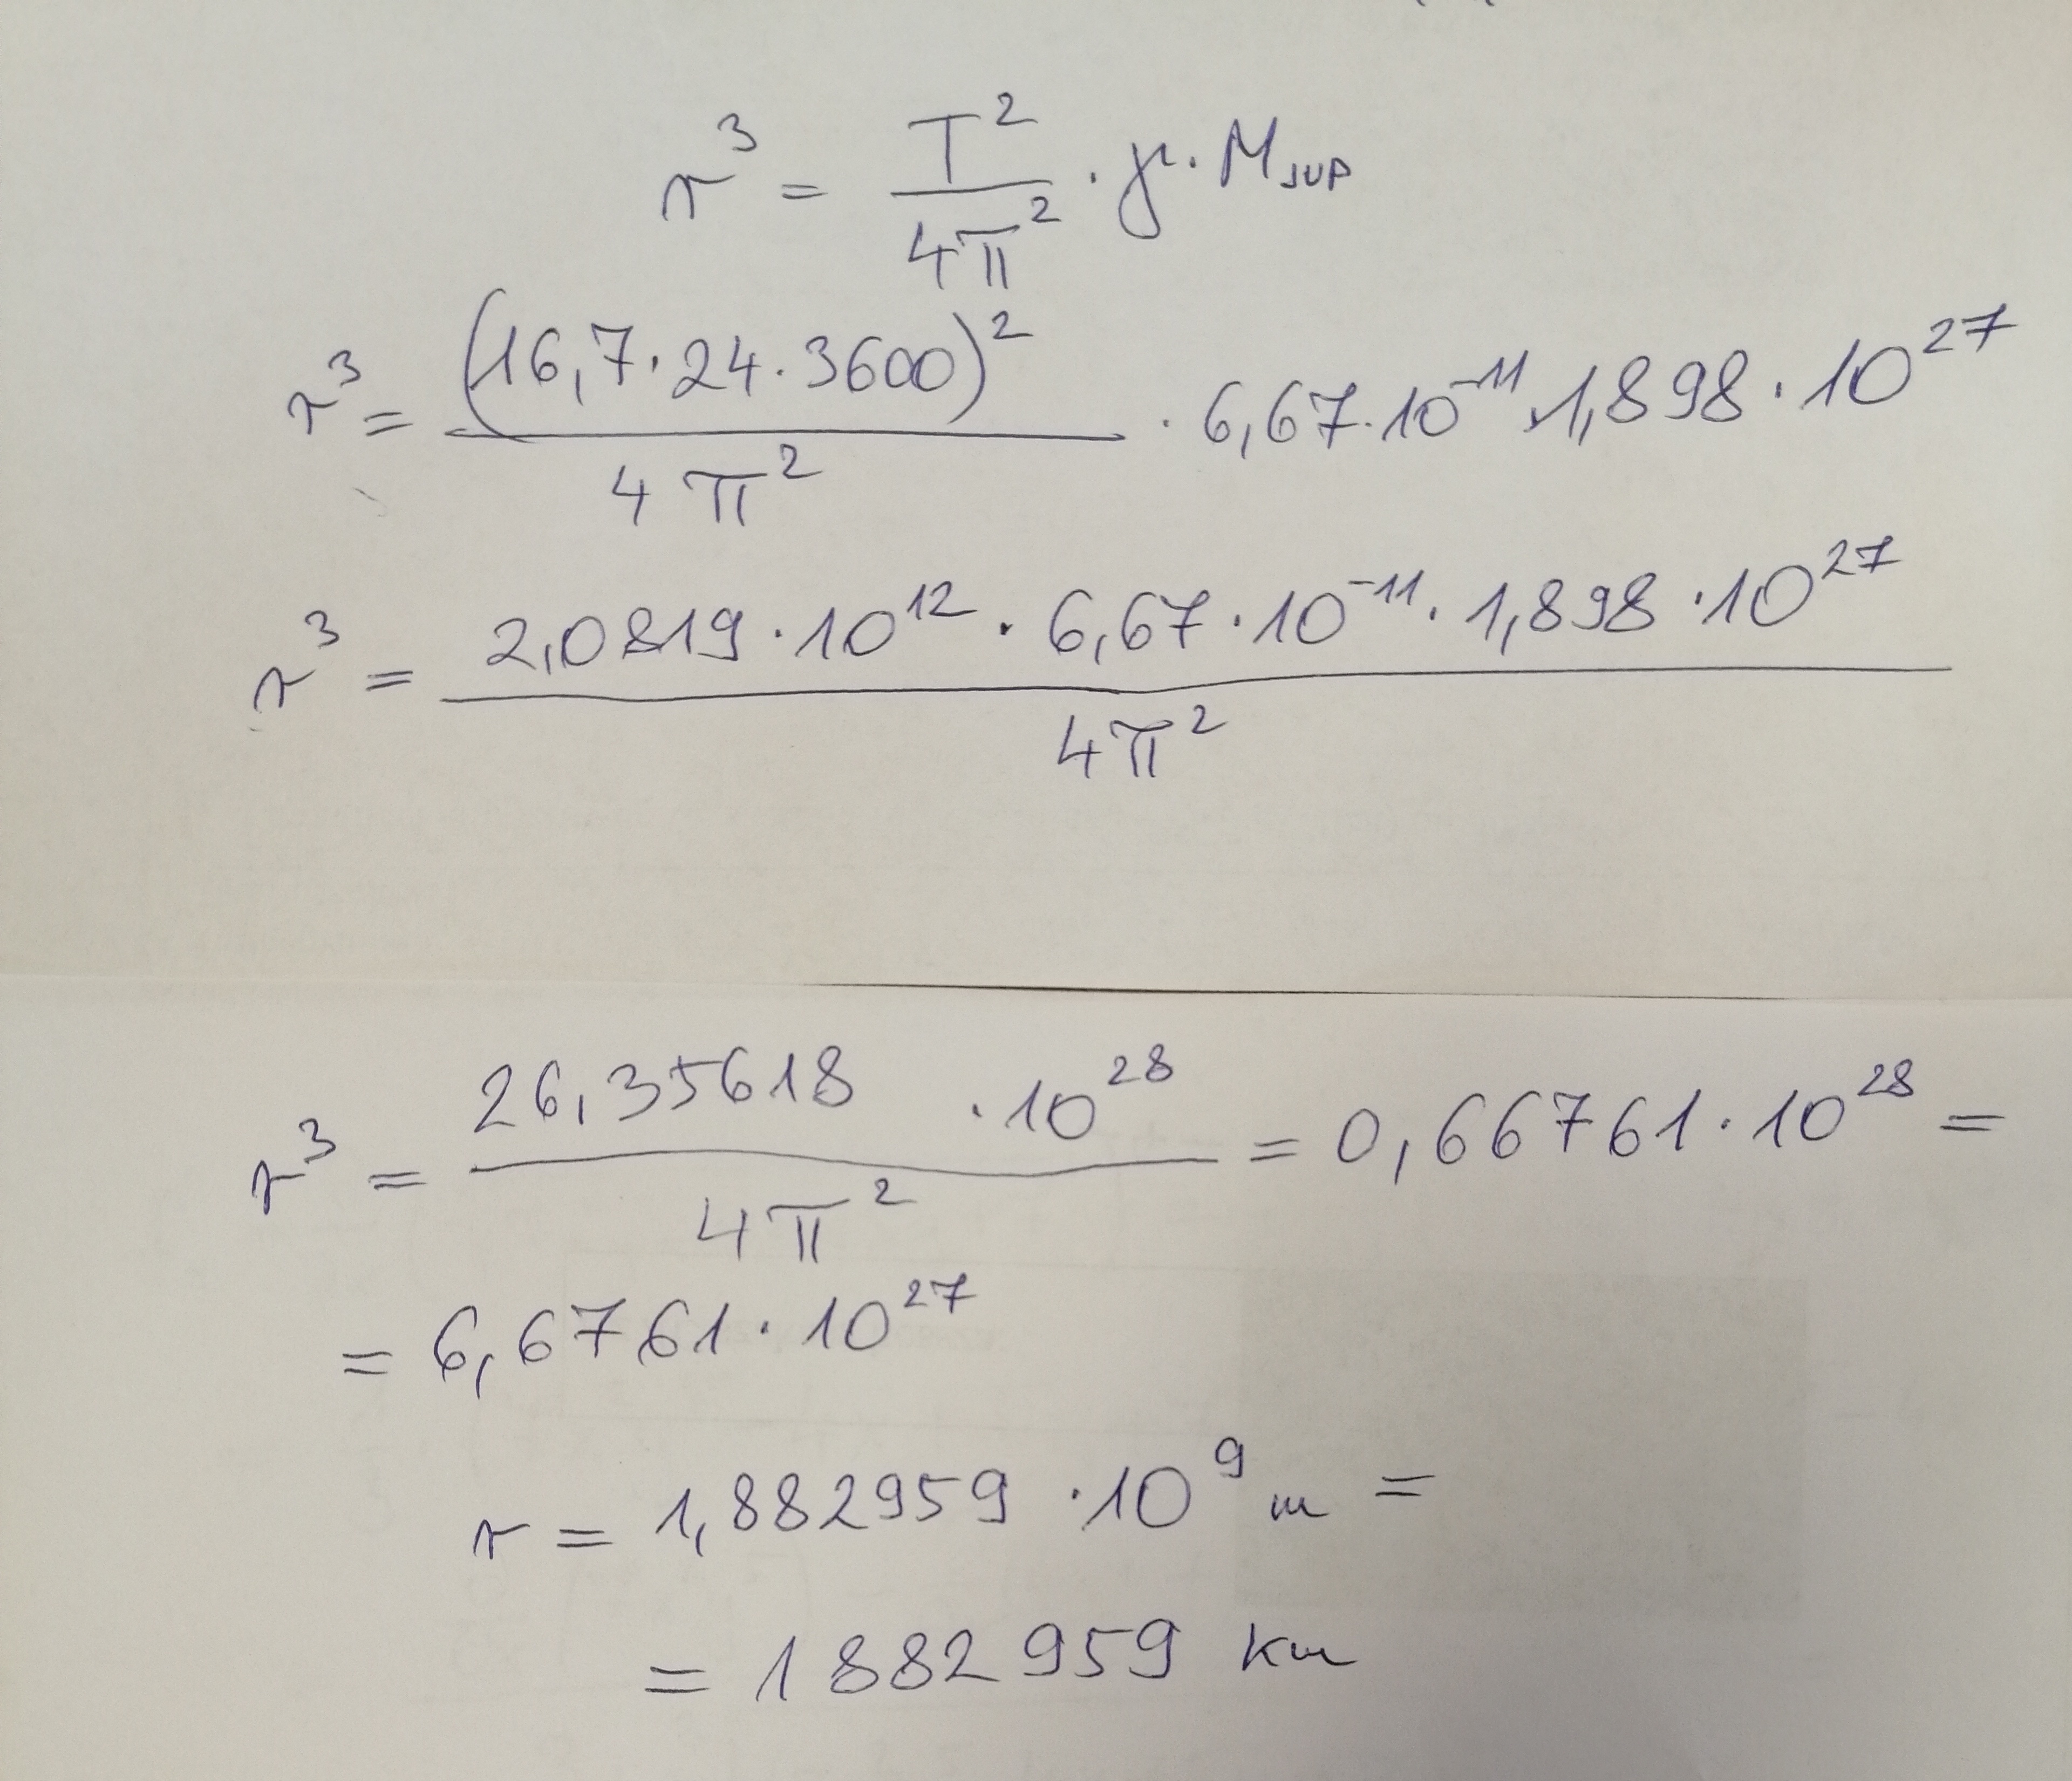 r³ = T² / 4π² · γ · M_JUP
r³ = (16,7 · 24 · 3600)² / 4π² · 6,67 · 10⁻¹¹ · 1,898 · 10²⁷
r³ = 2,0819 · 10¹² · 6,67 · 10⁻¹¹ · 1,898 · 10²⁷ / 4π²
r³ = 26,35618 · 10²⁸ / 4π² = 0,66761 · 10²⁸ =
= 6,6761 · 10²⁷
r = 1,882959 · 10⁹ m =
= 1 882 959 km